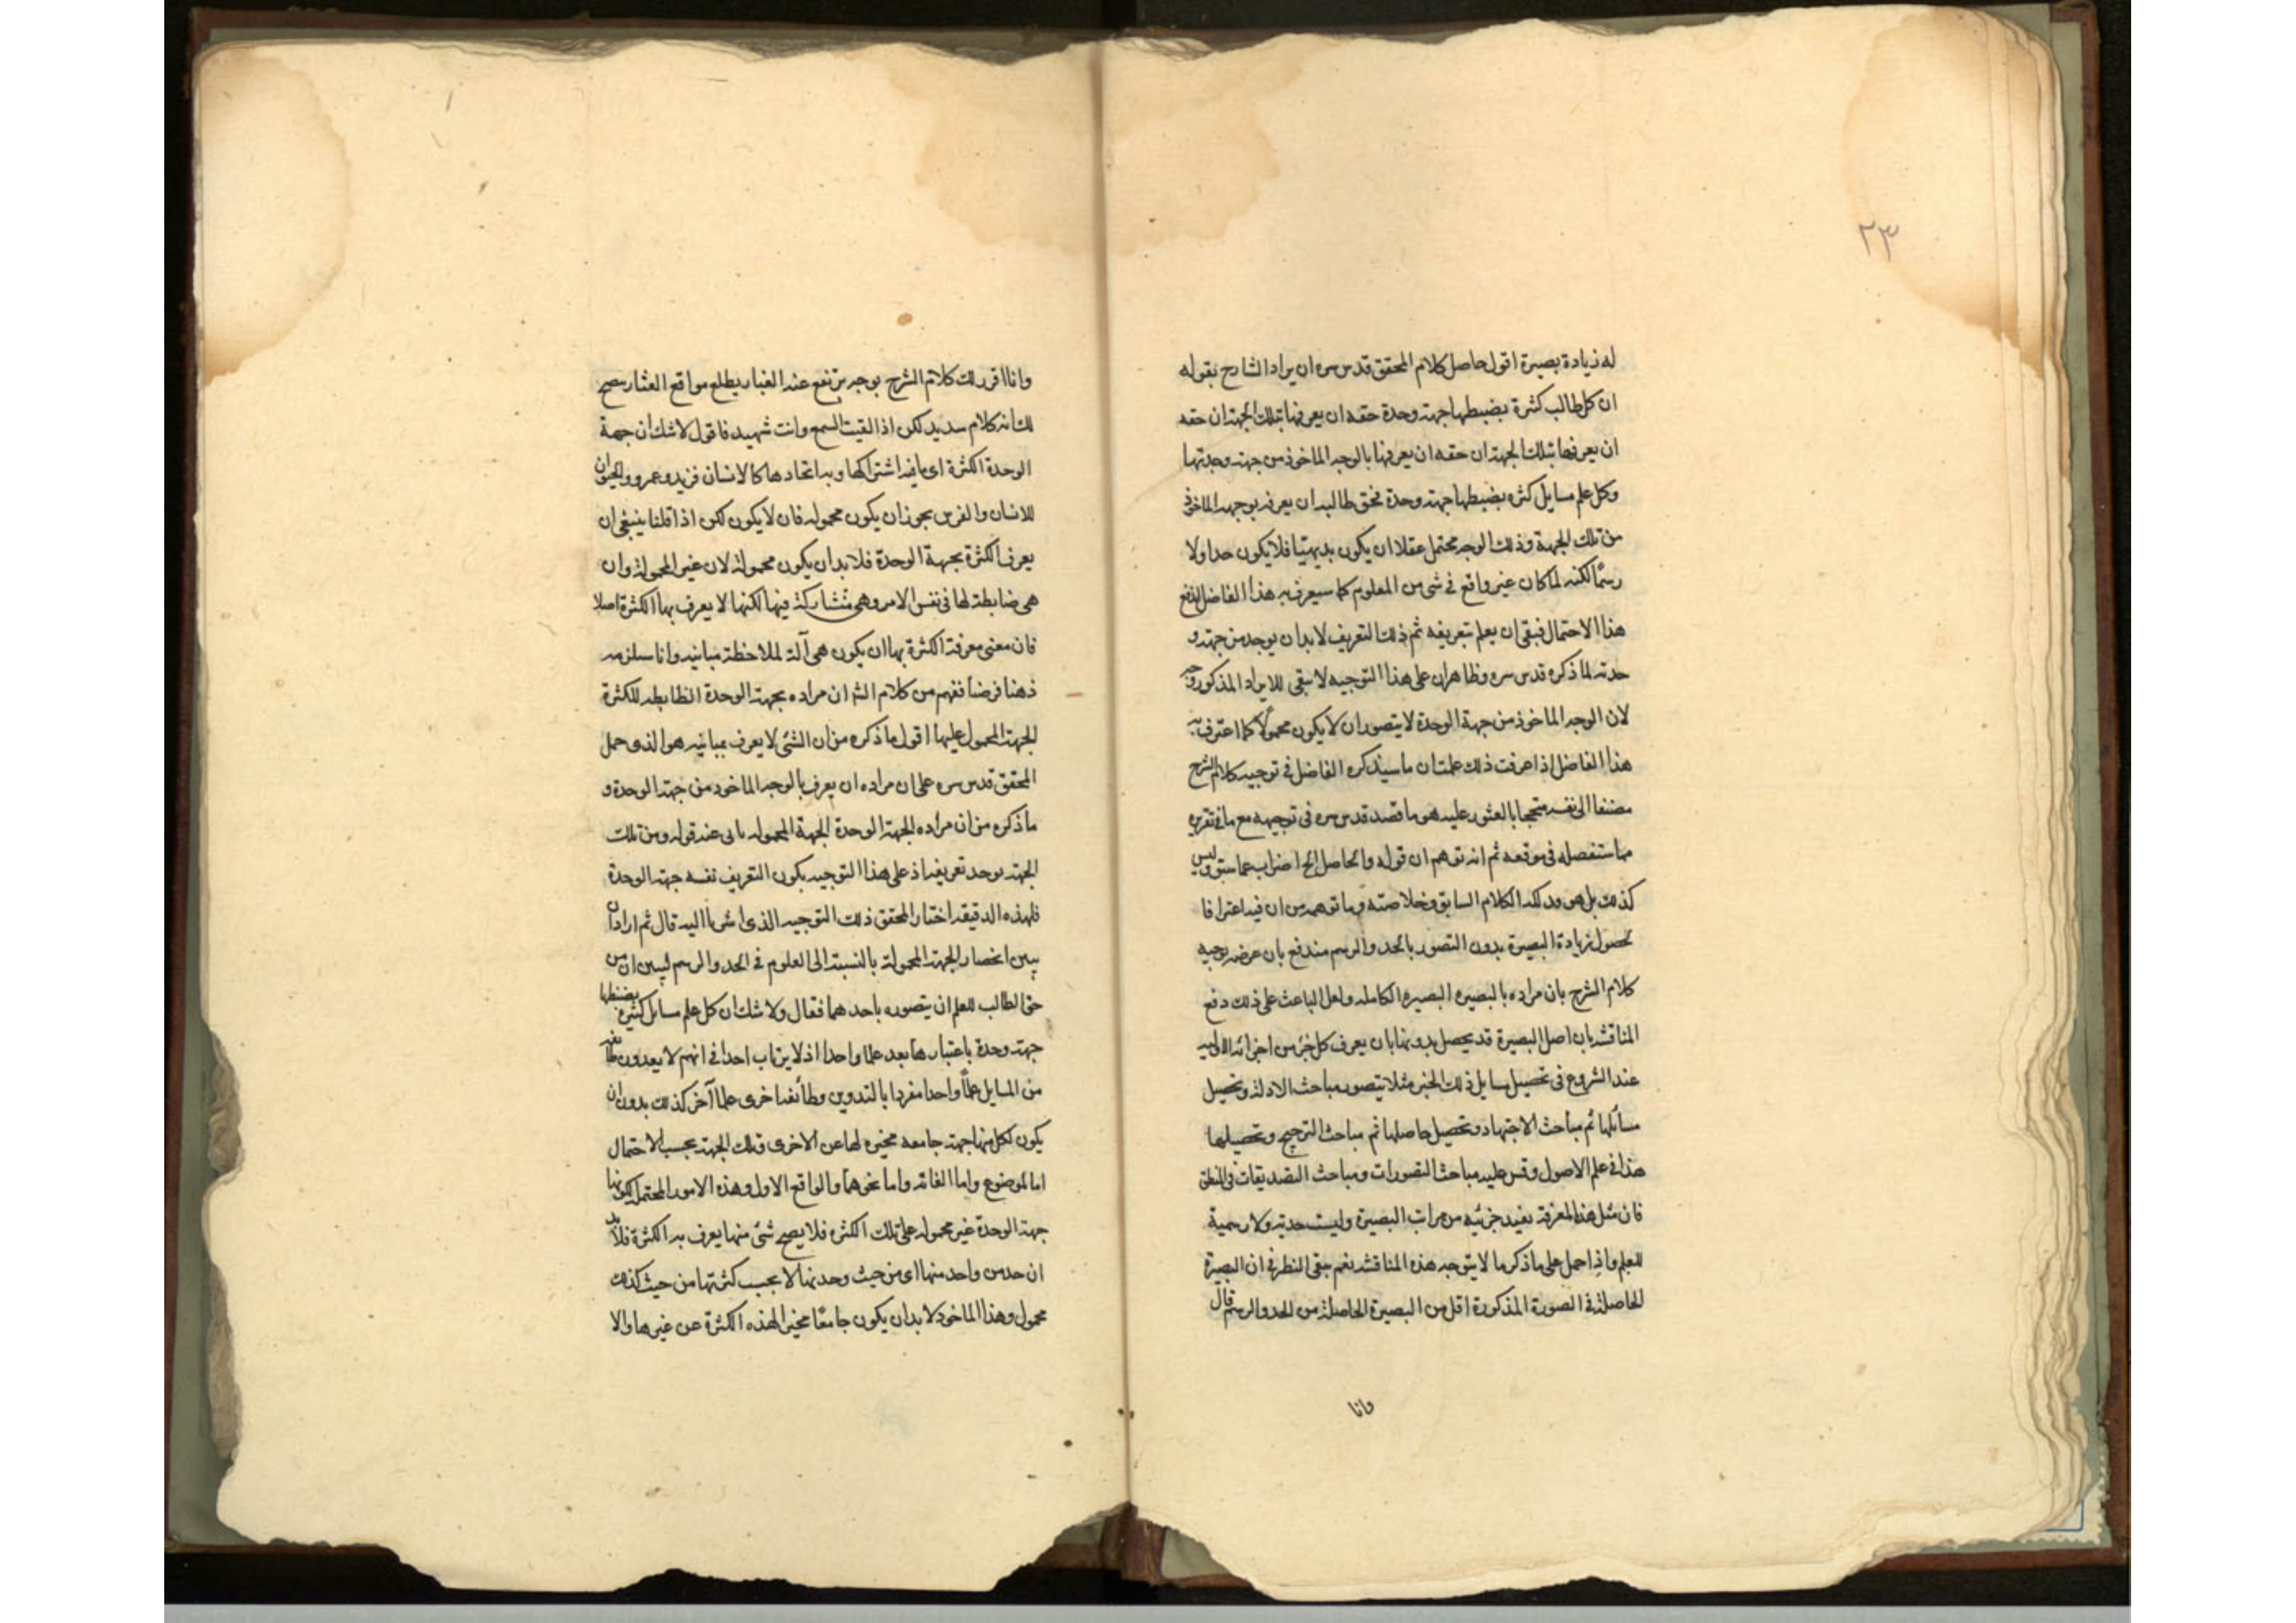 ٢٣
له زيادة بصيرة اقول حاصل كلام المحقق قدس سره ان مراد الشارح بقوله
ان كل طالب كثرة يضبطها جهة وحدة حقه ان يعرفها بتلك الجهة ان حقه
ان يعرفها بتلك الجهة ان حقه ان يعرفها بالوجه الماخوذ من جهة وحدتها
وكل علم مسايل كثره يضبطها جهة وحدة فحق طالبه ان يعرفه بوجهه الماخوذ
من تلك الجهة وذلك الوجه محتمل عقلا ان يكون بديهيا فلا يكون حدا ولا
رسمًا لكنه لما كان غير واقع في شى من العلوم كما سيعرف به هذا الفاضل اندفع
هذا الاحتمال فبقى ان يعلم بتعريفه ثم ذلك التعريف لابد ان يوجد من جهة و
حدته لما ذكره قدس سره وظاهر ان على هذا التوجيه لا يبقى للايراد المذكور وجه
لان الوجه الماخوذ من جهة الوحدة لا يتصور ان لا يكون محمولًا كما اعترف به
هذا الفاضل اذا عرفت ذلك علمت ان ما سيذكره الفاضل في توجيه كلام الشرح
مضفا الى نفسه متبجحا بالعثور عليه هو ما قصد قدس سره في توجيهه مع ما في تقريره
مما ستفصله في موقعه ثم انه توهم ان قوله والحاصل الخ اضراب عما سبق وليس
كذلك بل هو فذلكة الكلام السابق وخلاصته وما توهمه من ان فيه اعترافا
بحصول زيادة البصيرة بدون التصور بالحد والرسم مندفع بان غرضه توجيه
كلام الشرح بان مراده بالبصيره البصيره الكامله ولعل الباعث على ذلك دفع
المناقشه بان اصل البصيرة قد يحصل بدونها بان يعرف كل جزء من اجزائه الاوليه
عند الشروع في تحصيل مسايل ذلك الجزء مثلا يتصور مباحث الادلة وتحصيل
مسائلها ثم مباحث الاجتهاد وتحصيل حاصلها ثم مباحث الترجيح وتحصيلها
هذا في علم الاصول وقس عليه مباحث التصورات ومباحث التصديقات في المنطق
فان مثل هذه المعرفة يفيد جزئيه من مراتب البصيرة وليست حدية ولا رسمية
للعلم واذا حمل على ما ذكر ما لا يتوجه هذه المناقشه نعم يبقى النظر في ان البصيرة
الحاصلة في الصورة المذكورة اقل من البصيرة الحاصلة من الحد والرسم قال
وانا
وانا اقرر لك كلام الشرح بوجه يرتفع عنه الغبار يطلع مواقع العثار يصح
لك انه كلام سديد لكن اذا القيت السمع وانت شهيد فاقول لا شك ان جهة
الوحدة الكثرة اى ما فيه اشتراكها وبه اتحادها كالانسان فزيد وعمرو والحيوان
للانسان والفرس يجوز ان يكون محموله فان لا يكون لكن اذا قلنا ينبغي ان
يعرف الكثرة بجهة الوحدة فلا بد ان يكون محمولة لان غير المحمولة وان
هى ضابطة لها في نفس الامر وهى متشاركة فيها لكنها لا يعرف بها الكثرة اصلا
فان معنى معرفة الكثرة بها ان يكون هى آلة لملاحظة مباينه وانا سيلزمه
ذهنا فرضا نفهم من كلام الش ان مراده بجهة الوحدة الظابطه للكثرة
الجهة المحمول عليها اقول ما ذكره من ان الشئ لا يعرف بمباينه هو الذى حمل
المحقق قدس سره على ان مراده ان يعرف بالوجه الماخوذ من جهة الوحدة و
ما ذكره من ان مراده الجهة الوحدة الجهة المحموله يابى عنه قوله ومن تلك
الجهة يوجد تعريفه اذ على هذا التوجيه يكون التعريف نفسه جهة الوحدة
فلهذه الدقيقة اختار المحقق ذلك التوجيه الذى اشرنا اليه قال ثم اراد ان
يبين انحصار الجهة المحمولة بالنسبة الى العلوم في الحد والرسم ليبين ان من
حق الطالب للعلم ان يتصوره باحدهما فقال ولا شك ان كل علم مسايل كثيره يضبطها
جهة وحدة باعتبارها يعد علما واحدا اذ لا يرتاب احد في انهم لا يعدون طائفة
من المسايل علمًا واحدا مفردا بالتدوين وطائفة اخرى علما آخر كذلك بدون ان
يكون لكل منها جهة جامعه مميزه لها عن الاخرى وتلك الجهة بحسب الاحتمال
اما الموضوع واما الغائه واما نحوهما والواقع الاول وهذه الامور المحتمل لكونها
جهة الوحدة غير محموله على تلك الكثره فلا يصح شئ منها يعرف به الكثرة فلابد
ان حدس واحد منها اى من حيث وحدتها لا بحسب كثرتها من حيث كذلك
محمول وهذا الماخوذ لابد ان يكون جامعًا مميزا لهذه الكثرة عن غيرها والا